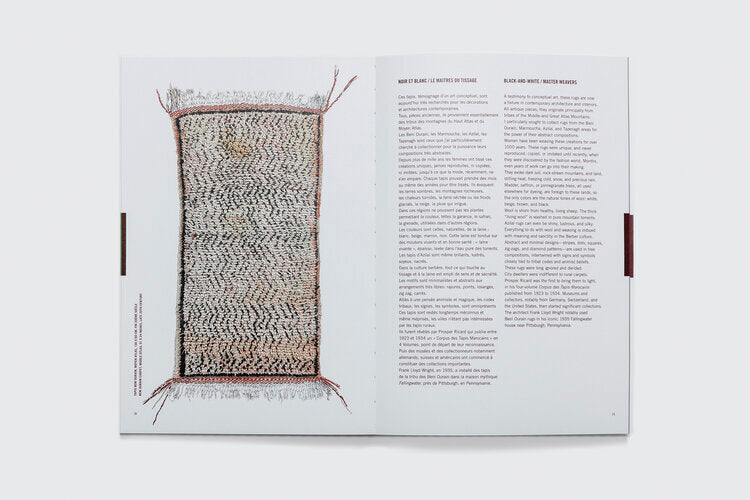 NOIR ET BLANC / LE MAITRES DU TISSAGE
Ces tapis, témoignage d'un art conceptuel, sont
aujourd'hui très recherchés pour les décorations
et architectures contemporaines.
Tous, pièces anciennes, ils proviennent essentiellement
des tribus des montagnes du Haut Atlas et du
Moyen Atlas.
Les Beni Ourain, les Marmoucha, les Azilal, les
Tazenagh sont ceux que j'ai particulièrement
cherché à collectionner pour la puissance leurs
compositions très abstraites.
Depuis plus de mille ans les femmes ont tissé ces
créations uniques, jamais reproduites, ni copiées,
ni imitées, jusqu'à ce que la mode, récemment, ne
s'en empare. Chaque tapis pouvait prendre des mois
ou même des années pour être tissés. Ils évoquent
les terres sombres, les montagnes rocheuses,
les chaleurs torrides, la terre séchée ou les froids
glacials, la neige, la pluie qui irrigue.
Dans ces régions ne poussent pas les plantes
permettant la couleur, telles la garance, le safran,
la grenade, utilisées dans d'autres régions.
Les couleurs sont celles, naturelles, de la laine :
blanc, beige, marron, noir. Cette laine est tondue sur
des moutons vivants et en bonne santé – « laine
vivante », épaisse, lavée dans l'eau pure des torrents.
Les tapis d'Azilal sont même brillants, lustrés,
soyeux, nacrés.
Dans la culture berbère, tout ce qui touche au
tissage et à la laine est empli de sens et de sacralité.
Les motifs sont minimalistes et abstraits aux
arrangements très libres: rayures, points, losanges,
zig zag, carrés.
Alliés à une pensée animiste et magique, les codes
tribaux, les signes, les symboles, sont omniprésents
Ces tapis sont restés longtemps méconnus et
même méprisés, les villes n'étant pas intéressées
par les tapis ruraux.
Ils furent révélés par Prosper Ricard qui publie entre
1923 et 1934 un « Corpus des Tapis Marocains » en
4 Volumes, point de départ de leur reconnaissance.
Puis des musées et des collectionneurs notamment
allemands, suisses et américains ont commencé à
constituer des collections importantes.
Frank Lloyd Wright, en 1935, a installé des tapis
de la tribu des Beni Ourain dans la maison mythique
Fallingwater, près de Pittsburgh, en Pennsylvanie.
BLACK-AND-WHITE / MASTER WEAVERS
A testimony to conceptual art, these rugs are now
a fixture in contemporary architecture and interiors.
All antique pieces, they originate principally from
tribes of the Middle and Great Atlas Mountains.
I particularly sought to collect rugs from the Beni
Ourain, Marmoucha, Azilal, and Tazenagh areas for
the power of their abstract compositions.
Women have been weaving these creations for over
1000 years. These rugs were unique, and never
reproduced, copied, or imitated until recently, when
they were discovered by the fashion world. Months,
even years of work can go into their making.
They evoke dark soil, rock-strewn mountains, arid land,
stifling heat, freezing cold, snow, and precious rain.
Madder, saffron, or pomegranate trees, all used
elsewhere for dyeing, are foreign to these lands, so
the only colors are the natural tones of wool: white,
beige, brown, and black.
Wool is shorn from healthy, living sheep. The thick
"living wool" is washed in pure mountain torrents.
Azilal rugs can even be shiny, lustrous, and silky.
Everything to do with wool and weaving is imbued
with meaning and sanctity in the Berber culture.
Abstract and minimal designs—stripes, dots, squares,
zig-zags, and diamond patterns—are used in free
compositions, intertwined with signs and symbols
closely tied to tribal codes and animist beliefs.
These rugs were long ignored and derided.
City dwellers were indifferent to rural carpets.
Prosper Ricard was the first to bring them to light,
in his four-volume Corpus des Tapis Marocains
published from 1923 to 1934. Museums and
collectors, notably from Germany, Switzerland, and
the United States, then started significant collections.
The architect Frank Lloyd Wright notably used
Beni Ourain rugs in his iconic 1935 Fallingwater
house near Pittsburgh, Pennsylvania.